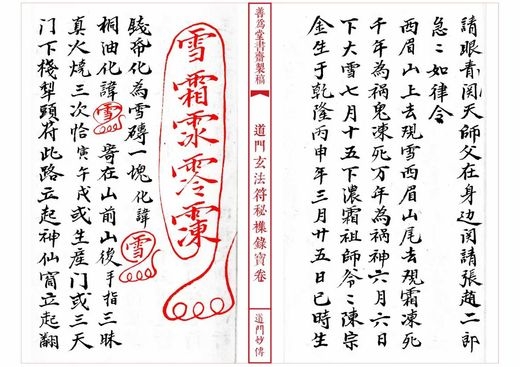 請眼青閃天師父在身边閃請張趙二郎
急〻如律令
西眉山上去現雪西眉山尾去現霜凍死
千年為禍鬼凍死万年為禍神六月六日
下大雪七月十五下濃霜祖師爷〻陳宗
金生于乾隆丙申年三月廿五日已時生
善為堂書齋製稿
道門玄法符秘錄寶卷
道门妙傳
雪霜
化為雪磚一塊化諱雪
桐油化諱雪寄在山前山後手指三昧
真火燒三次恰寅午戌或生産門或三天
門下棧犁頭符此路立起神仙窗立起翻